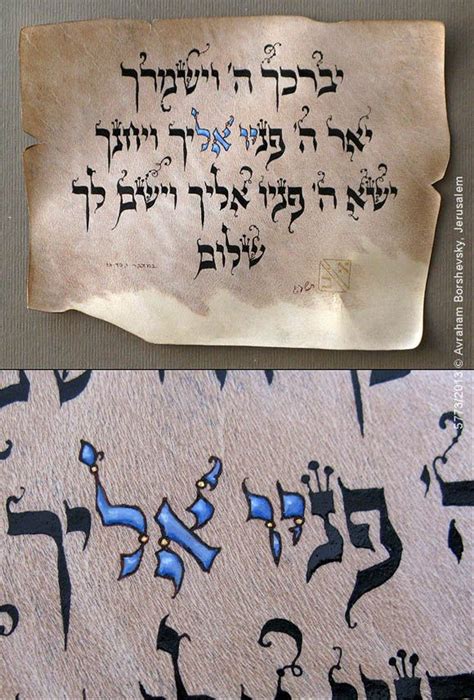 יברכך ה' וישמרך
יאר ה' פניו אליך ויחנך
ישא ה' פניו אליך וישם לך
שלום
5773/2013 © Avraham Borshevsky, Jerusalem
ה' פניו אליך